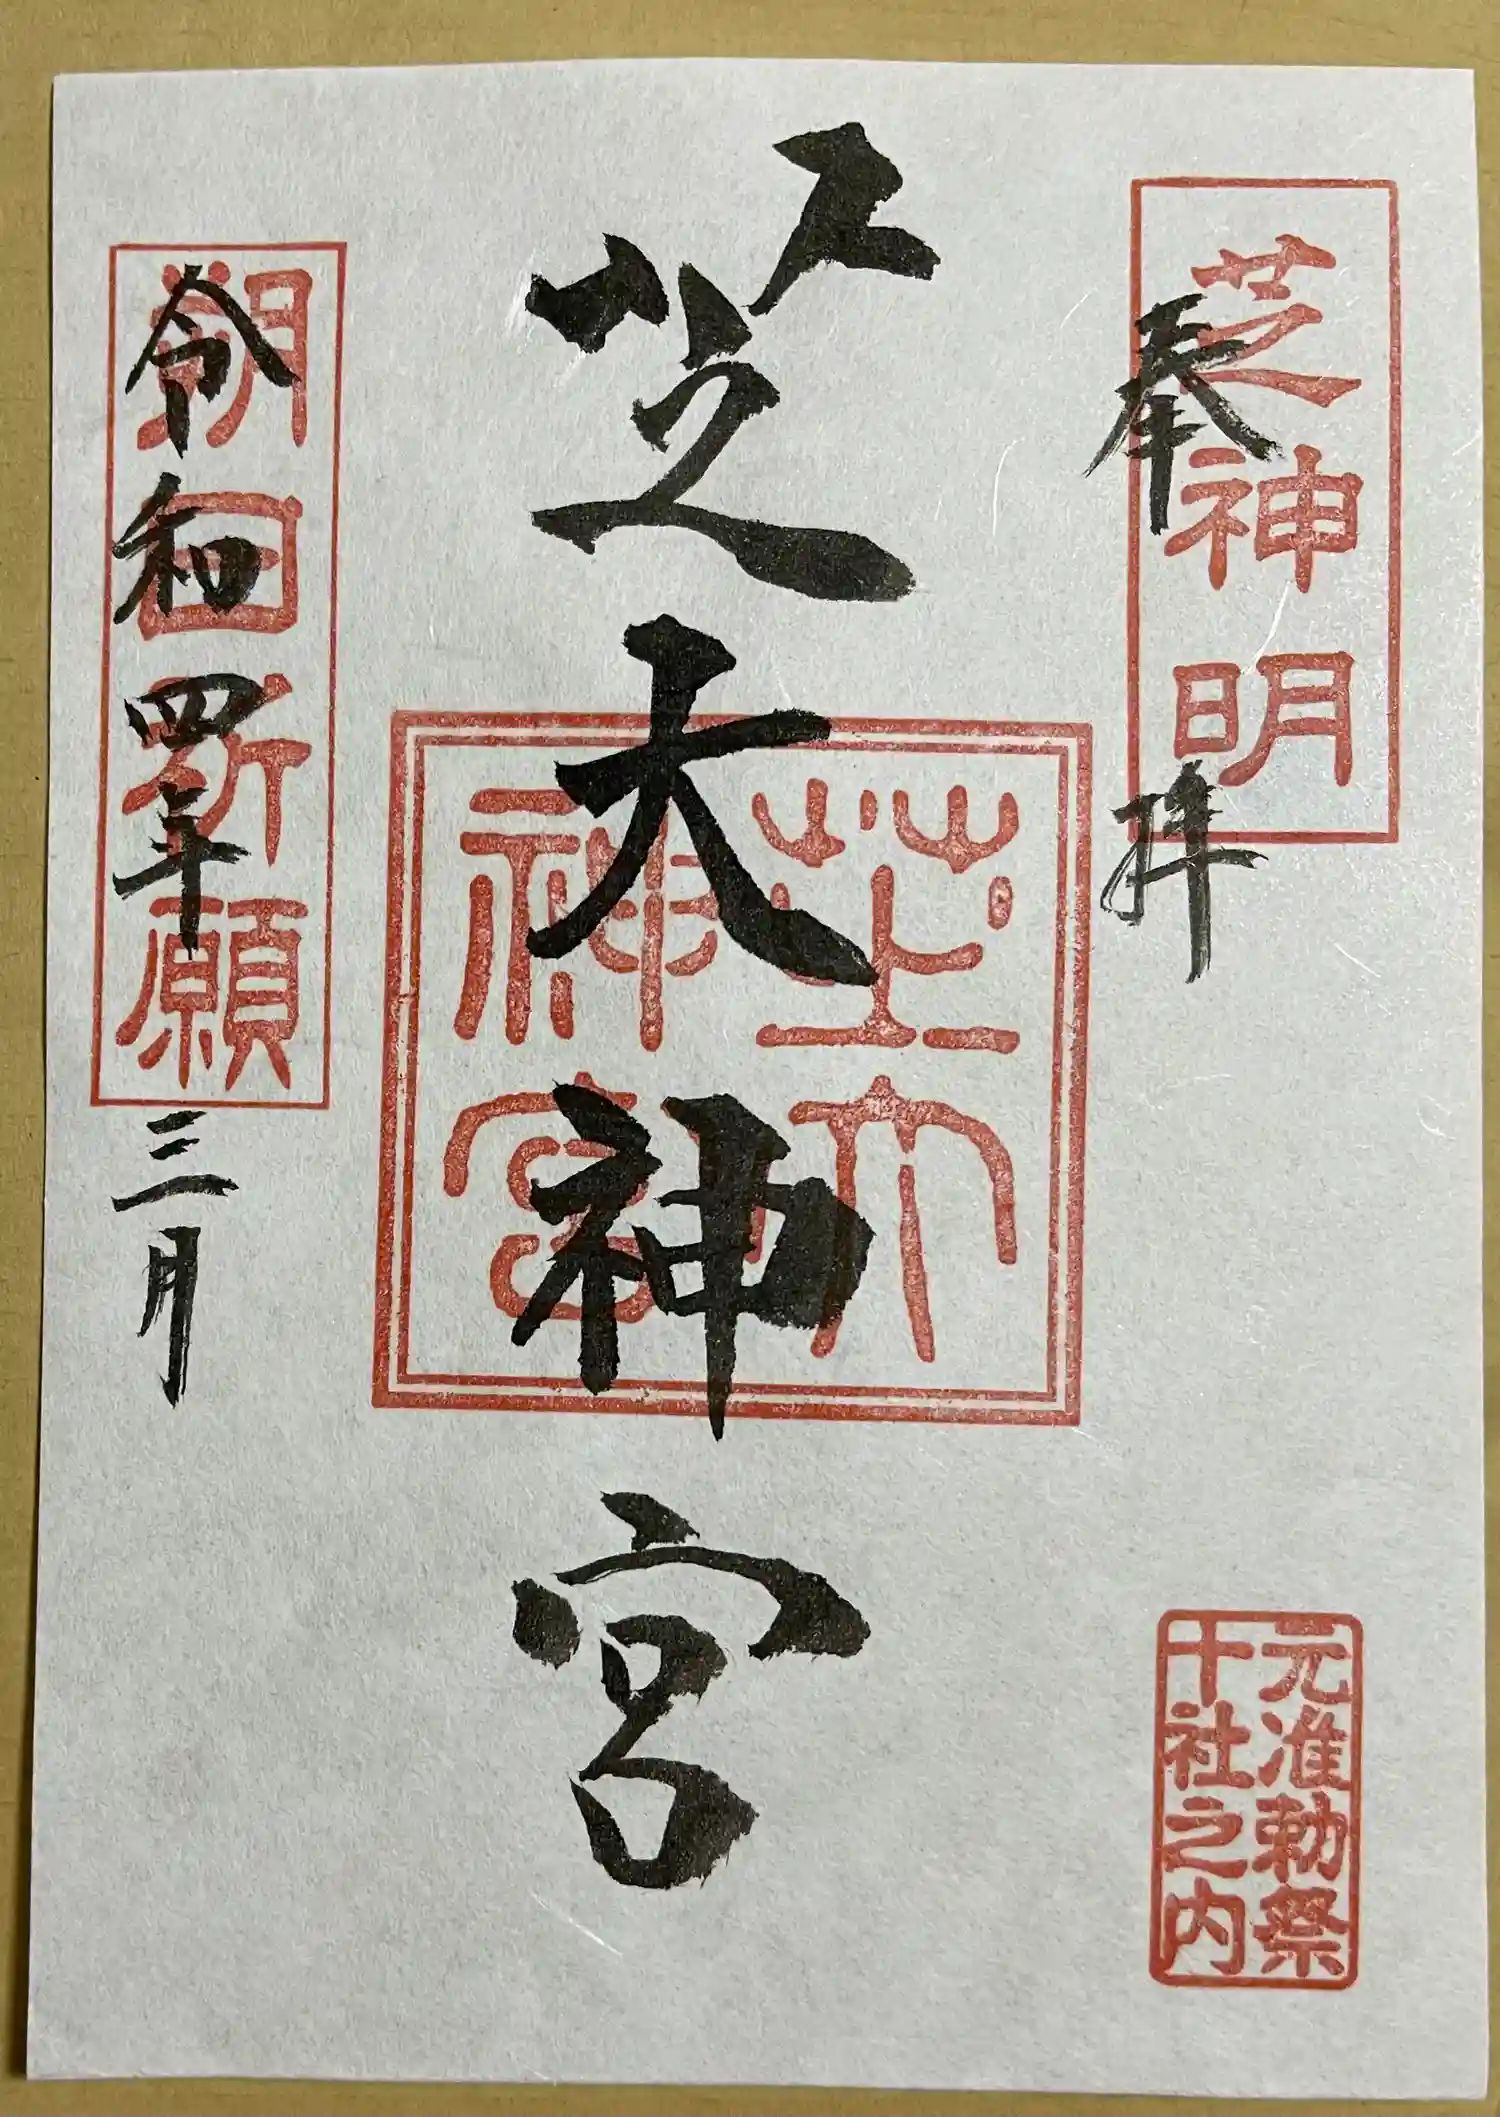 芝神明
奉拝
元准勅祭
十社之内
芝大神宮
芝大
神宮
朔日祈願
令和四年三月